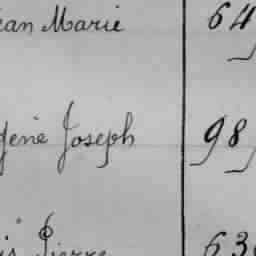 Jean Marie 64
gène Joseph 98
is Pierre 63